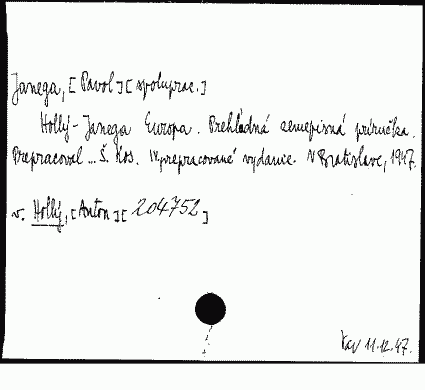 Janega, [Pavol] [spoluprac.]
Hollý-Janega Europa. Prehľadná zemepisná príručka.
Prepracoval ... Š. Kos. IV. prepracované vydanie. V Bratislave, 1947.
v. Hollý, [Anton] [204752]
11.12.47.